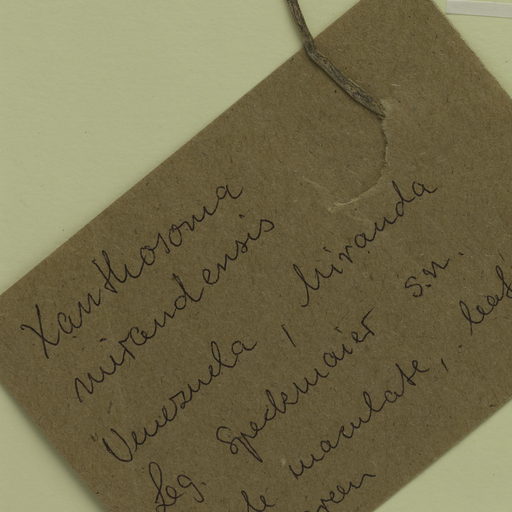 Xanthosoma
mirandensis
Venezuela, Miranda
Leg. Speckmaier s.n.
maculate, leaf